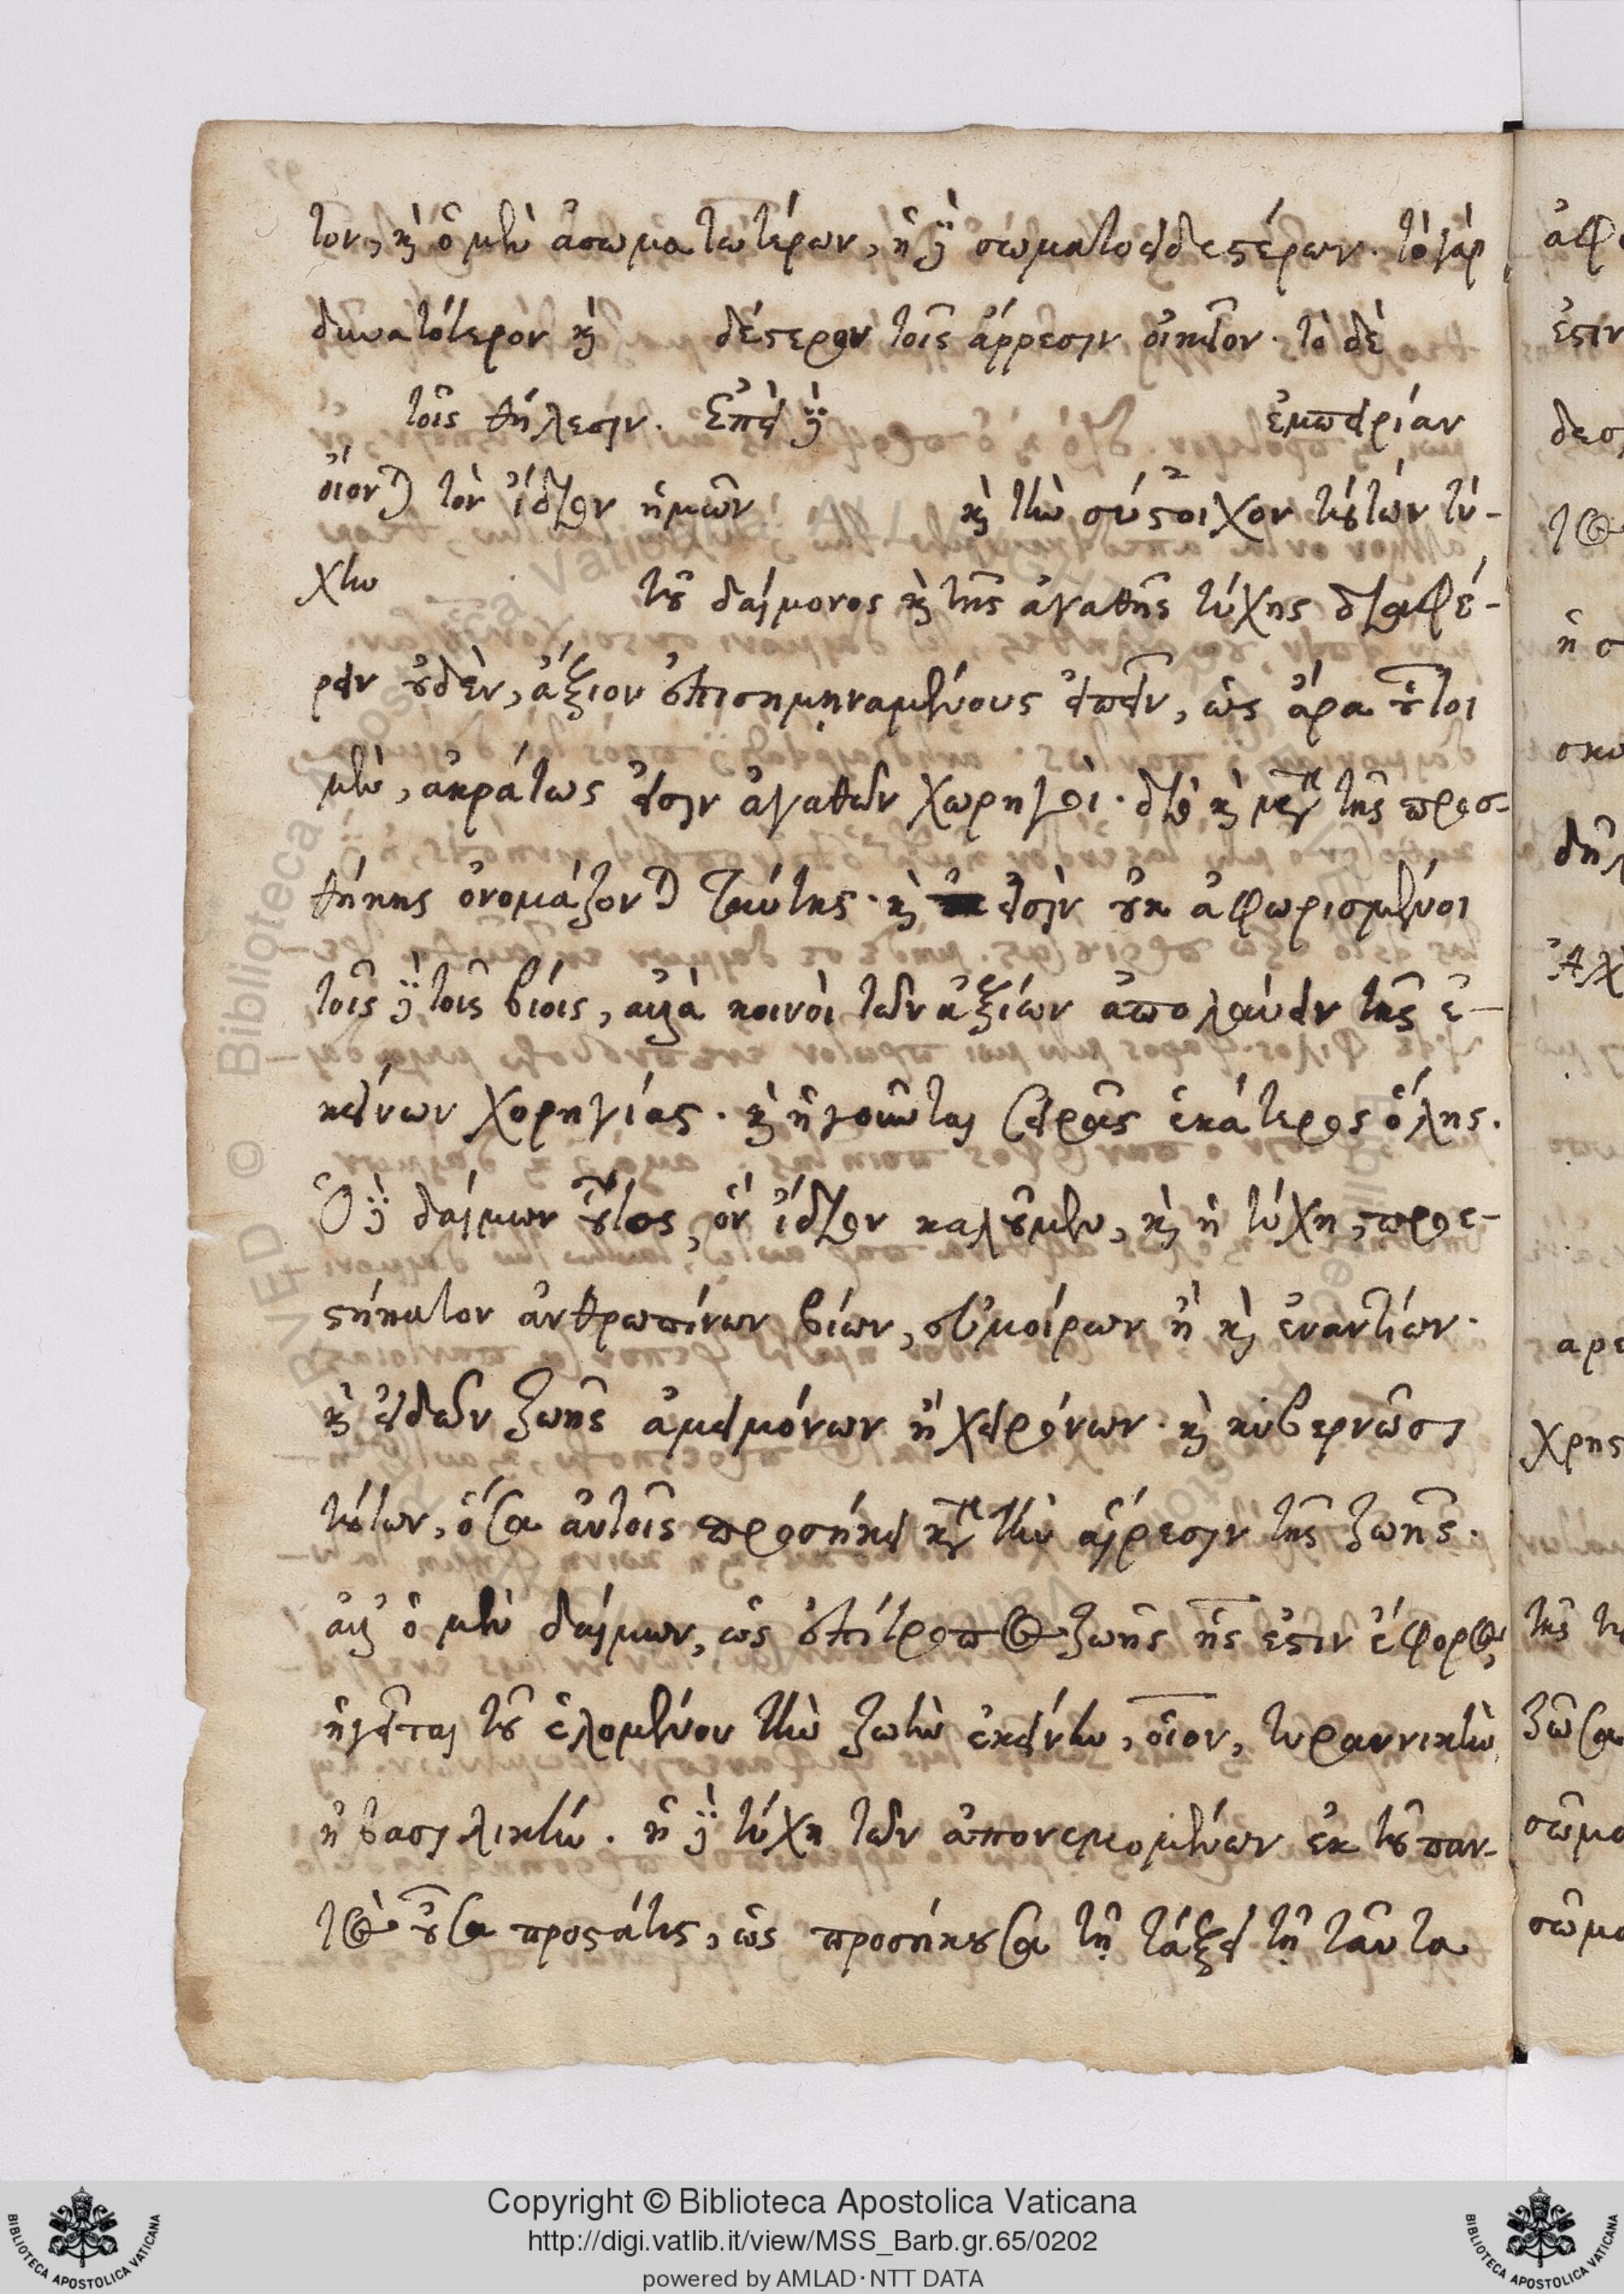 των, καὶ ὁ μὲν ἀσωματωτέρων, ἡ δὲ σωματοειδεστέρων. τὸ γὰρ
δυνατώτερον καὶ δέστερον τοῖς ἄρρεσιν οἰκεῖον. τὸ δὲ
τοῖς θήλεσιν. Ἐπεὶ δὲ ἐμπειρίαν
οἴονται τὸν ἴδιον ἡμῶν καὶ τὴν σύστοιχον τούτων τύ-
χην τοῦ δαίμονος καὶ τῆς ἀγαθῆς τύχης διαφέ-
ρειν οὐδὲν, ἄξιον ἐπισημηναμένους εἰπεῖν, ὡς ἄρα οὗτοι
μὲν, ἀκράτως εἰσὶν ἀγαθῶν χωρηγοὶ. διὸ καὶ μετὰ τῆς προσ-
θήκης ὀνομάζονται ταύτης. καὶ εἰσὶν οὐκ ἀφωρισμένοι
τοῖς δὲ τοῖς βίοις, ἀλλὰ κοινοὶ τῶν ἀξίων ἀπολαύειν τῆς ἐ-
κείνων χορηγίας. καὶ ἡγοῦνται σειρᾶς ἑκάτερος ὅλης.
Ὁ δὲ δαίμων οὗτος, ὃν ἴδιον καλοῦμεν, καὶ ἡ τύχη, προε-
στήκατον ἀνθρωπίνων βίων, συμμοίρων ἢ καὶ ἐναντίων.
καὶ εἰδῶν ζωῆς ἀμεινόνων ἢ χειρόνων. καὶ κυβερνῶσι
τούτων, ὅσα αὐτοῖς προσήκει κατὰ τὴν αἵρεσιν τῆς ζωῆς.
ἀλλ' ὁ μὲν δαίμων, ὡς ἐπίτροπος ζωῆς ἧς ἐστιν ἔφορος,
ἡγεῖται τοῦ ἑλομένου τὴν ζωὴν ἐκείνην, οἷον, τυραννικὴν
ἢ βασιλικήν. ἡ δὲ τύχη τῶν ἀπονεμομένων ἐκ τοῦ παν-
τὸς οὖσα προστάτις, ὡς προσήκουσα τῇ τάξει τῇ ταῦτα
Copyright © Biblioteca Apostolica Vaticana
http://digi.vatlib.it/view/MSS_Barb.gr.65/0202
powered by AMLAD · NTT DATA